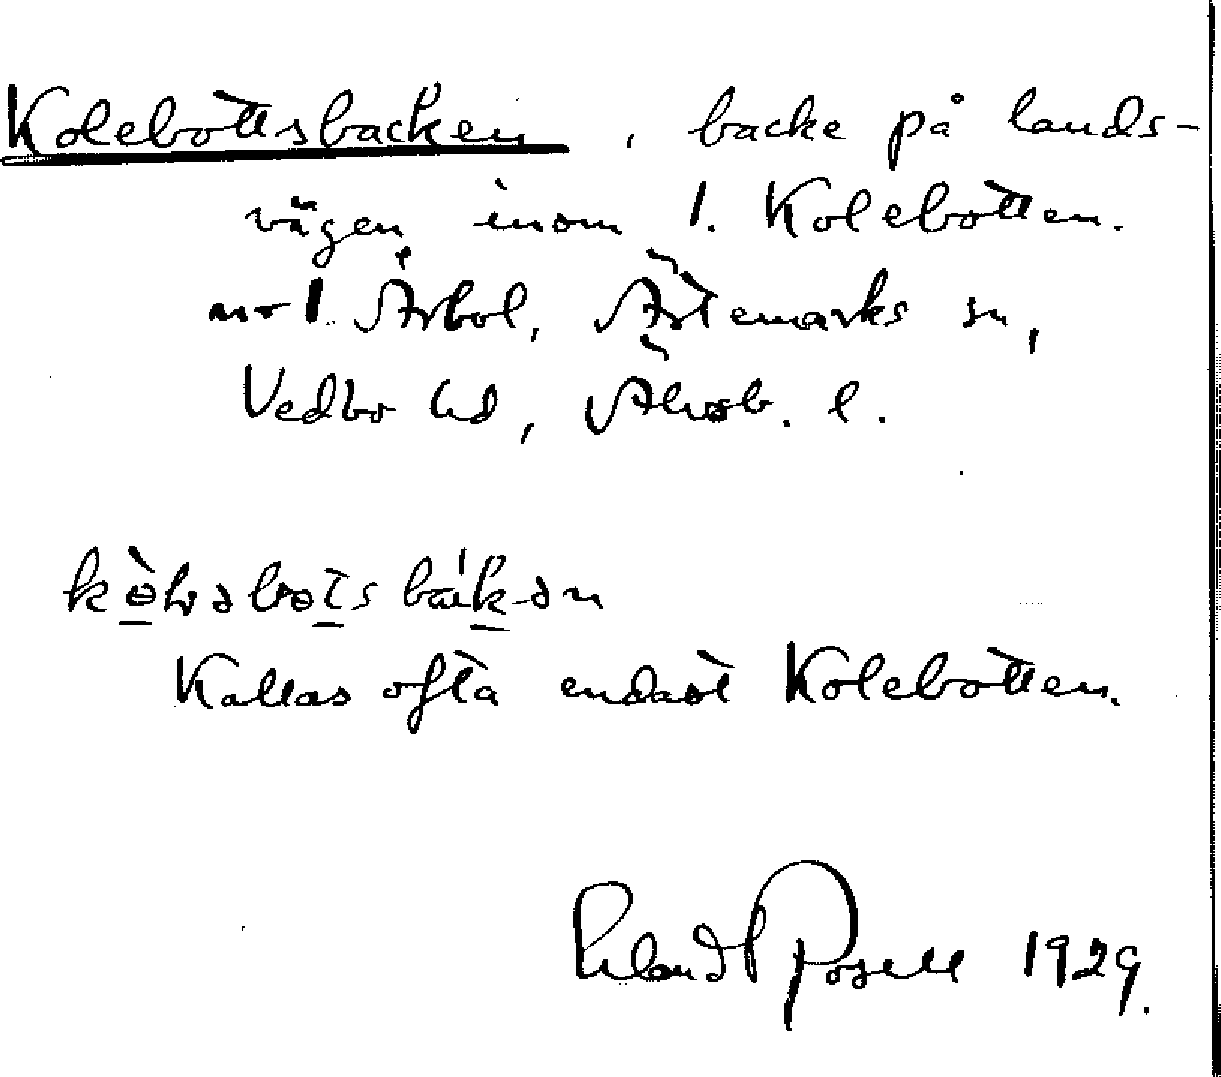 Kolebottsbacken, backe på lands-
vägen inom l. Kolebotten.
nr 1 Årbol, Ärtemarks sn,
Vedbo hd, Älvsb. l.
Kallas ofta endast Kolebotten.
Erland Rosell 1929.